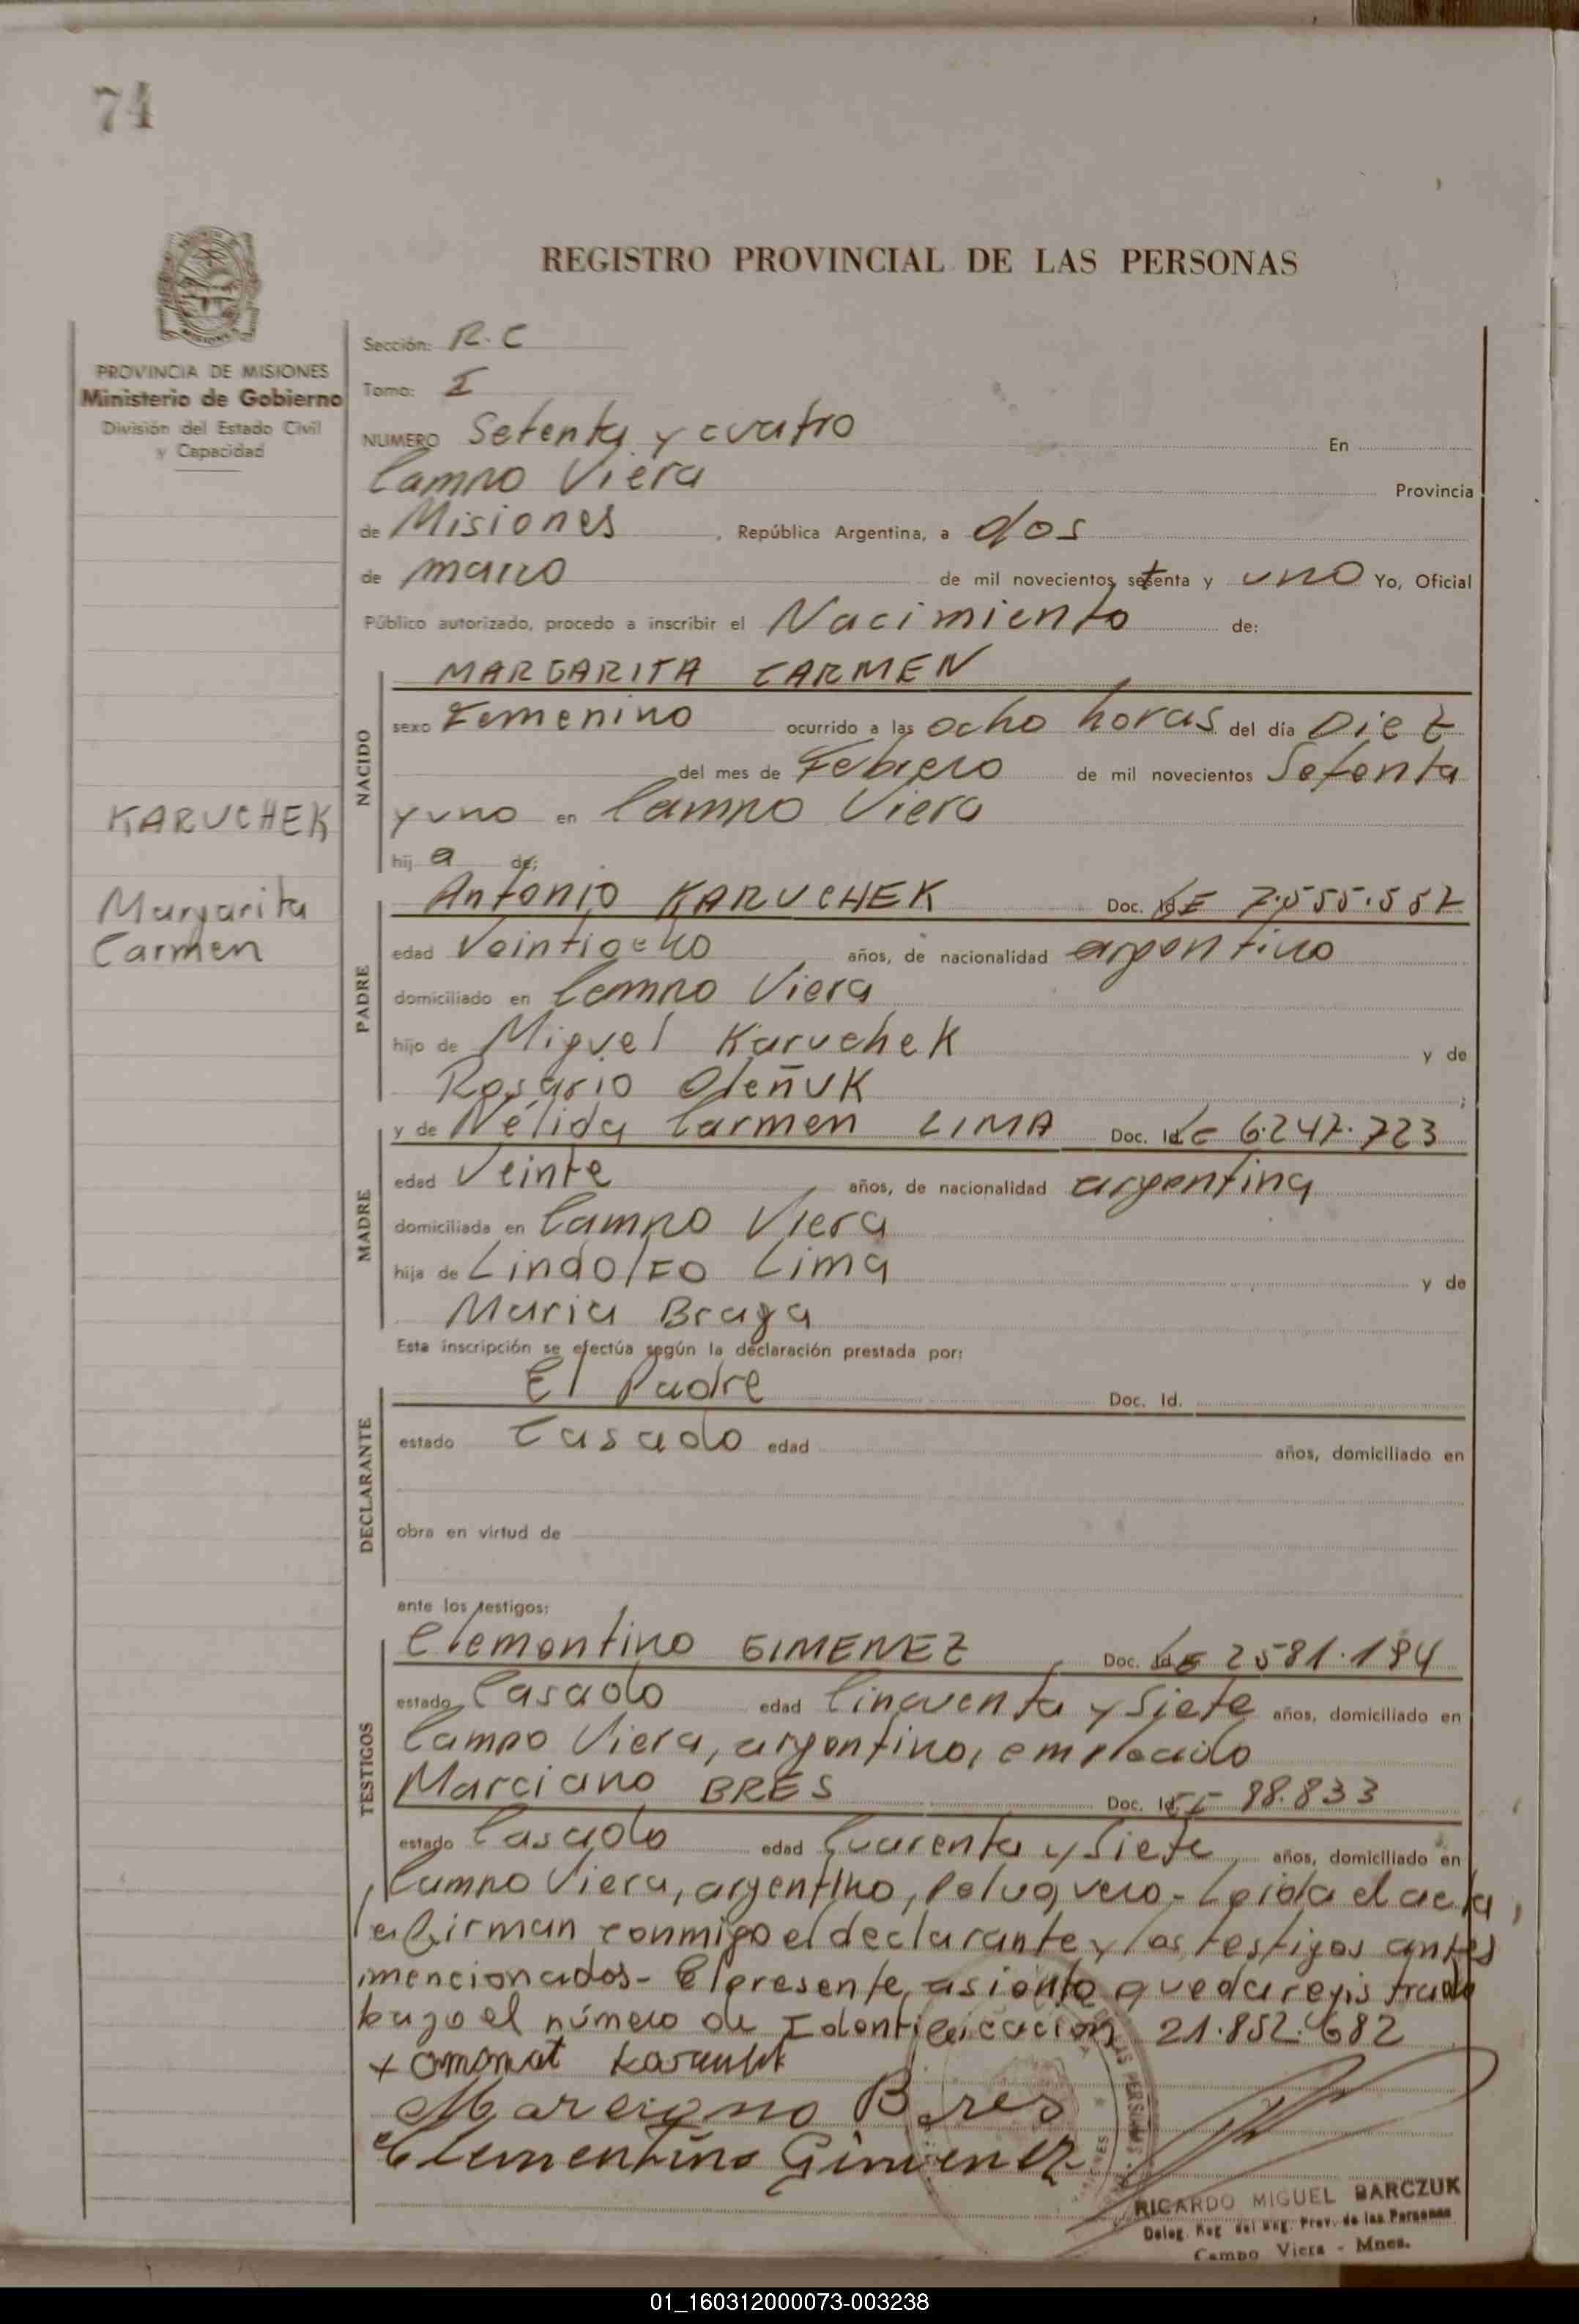 74
REGISTRO PROVINCIAL DE LAS PERSONAS
PROVINCIA DE MISIONES
Ministerio de Gobierno
División del Estado Civil
y Capacidad
KARUCHEK
Margarita
Carmen
Sección: R.C
Tomo: I
NUMERO Setenta y cuatro En
Campo Viera Provincia
de Misiones, República Argentina, a dos
de marzo de mil novecientos setenta y uno Yo, Oficial
Público autorizado, procedo a inscribir el Nacimiento de:
NACIDO
MARGARITA CARMEN
sexo Femenino ocurrido a las ocho horas del día Diez
del mes de Febrero de mil novecientos Setenta
y uno en Campo Viera
hij a de:
PADRE
Antonio KARUCHEK Doc. Id LE 7.555.557
edad Veintiocho años, de nacionalidad argentino
domiciliado en Campo Viera
hijo de Miguel Karuchek y de
Rosario Oleñuk ;
MADRE
y de Nélida Carmen LIMA Doc. Id LC 6.247.723
edad Veinte años, de nacionalidad argentina
domiciliada en Campo Viera
hija de Lindolfo Lima y de
Maria Braga
Esta inscripción se efectúa según la declaración prestada por:
DECLARANTE
El Padre Doc. Id.
estado Casado edad años, domiciliado en
obra en virtud de
ante los testigos:
TESTIGOS
Clementino GIMENEZ Doc. Id LE 2581.184
estado Casado edad Cincuenta y Siete años, domiciliado en
Campo Viera, argentino, empleado
Marciano BRES Doc. Id 98.833
estado Casado edad Cuarenta y Siete años, domiciliado en
Campo Viera, argentino, Peluquero - Leida el acta,
la firman conmigo el declarante y los testigos antes
mencionados - El presente asiento queda registrado
bajo el número de Identificación 21.852.682
Marciano Bres
Clementino Gimenez
RICARDO MIGUEL BARCZUK
Deleg. Reg. del Reg. Prov. de las Personas
Campo Viera - Mnes.
01_160312000073-003238